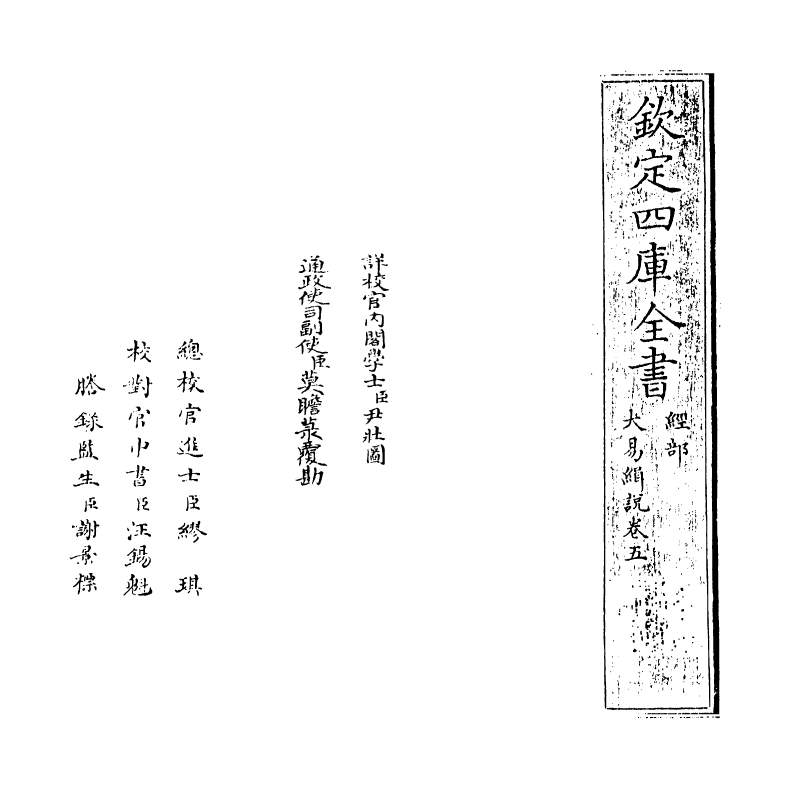 欽定四庫全書
經部
大易緝說卷五
詳校官內閣學士臣尹壯圖
通政使司副使臣莫瞻菉覆勘
總校官進士臣繆琪
校對官中書臣汪錫魁
謄錄監生臣謝景標